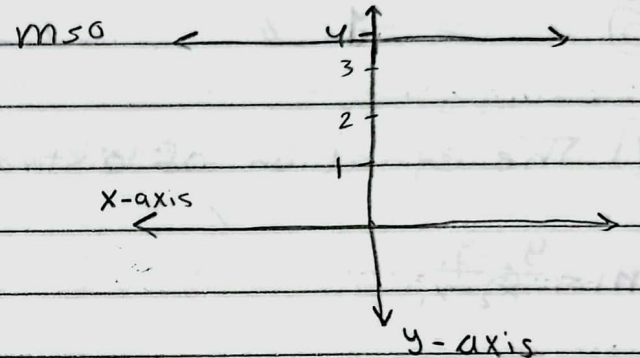 m=0
4
3
2
1
x-axis
y-axis